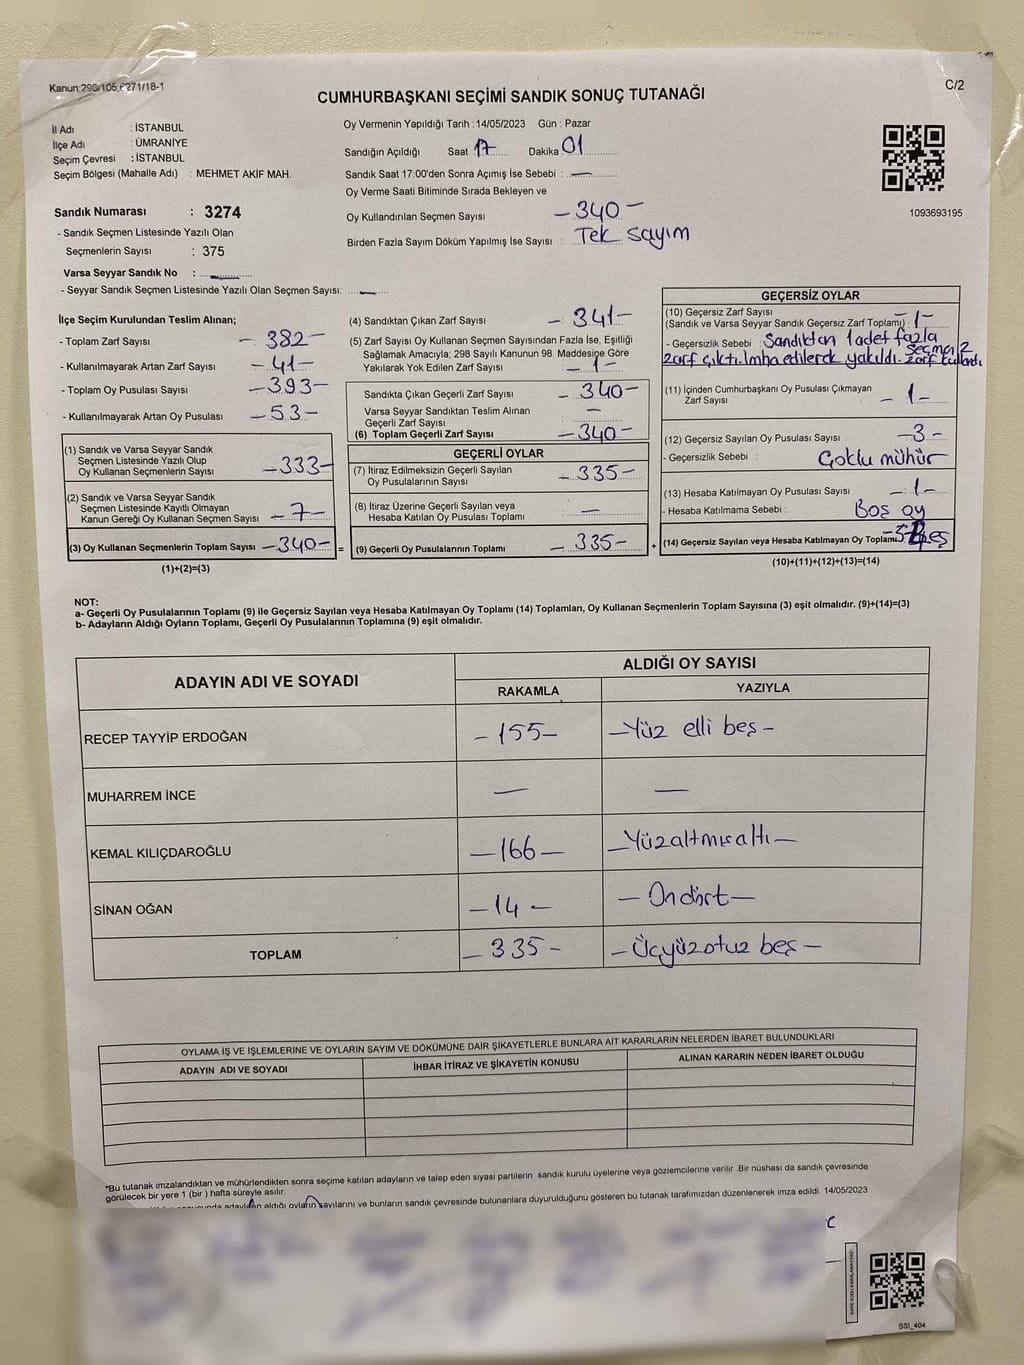 Kanun:298/105,6271/18-1
C/2
CUMHURBAŞKANI SEÇİMİ SANDIK SONUÇ TUTANAĞI
İl Adı : İSTANBUL
İlçe Adı : ÜMRANİYE
Seçim Çevresi : İSTANBUL
Seçim Bölgesi (Mahalle Adı) : MEHMET AKİF MAH.
Oy Vermenin Yapıldığı Tarih : 14/05/2023 Gün : Pazar
Sandığın Açıldığı Saat 17 Dakika 01
Sandık Saat 17:00'den Sonra Açımış İse Sebebi : —
Oy Verme Saati Bitiminde Sırada Bekleyen ve
Oy Kullandırılan Seçmen Sayısı – 340 –
Birden Fazla Sayım Döküm Yapılmış İse Sayısı : Tek sayım
1093693195
Sandık Numarası : 3274
- Sandık Seçmen Listesinde Yazılı Olan
Seçmenlerin Sayısı : 375
Varsa Seyyar Sandık No : —
- Seyyar Sandık Seçmen Listesinde Yazılı Olan Seçmen Sayısı: —
İlçe Seçim Kurulundan Teslim Alınan;
- Toplam Zarf Sayısı – 382 –
- Kullanılmayarak Artan Zarf Sayısı – 41 –
- Toplam Oy Pusulası Sayısı – 393 –
- Kullanılmayarak Artan Oy Pusulası – 53 –
(1) Sandık ve Varsa Seyyar Sandık
Seçmen Listesinde Yazılı Olup
Oy Kullanan Seçmenlerin Sayısı – 333 –
(2) Sandık ve Varsa Seyyar Sandık
Seçmen Listesinde Kayıtlı Olmayan
Kanun Gereği Oy Kullanan Seçmen Sayısı – 7 –
(3) Oy Kullanan Seçmenlerin Toplam Sayısı – 340 – =
(1)+(2)=(3)
(4) Sandıktan Çıkan Zarf Sayısı – 341 –
(5) Zarf Sayısı Oy Kullanan Seçmen Sayısından Fazla İse, Eşitliği
Sağlamak Amacıyla; 298 Sayılı Kanunun 98. Maddesine Göre
Yakılarak Yok Edilen Zarf Sayısı – 1 –
Sandıkta Çıkan Geçerli Zarf Sayısı – 340 –
Varsa Seyyar Sandıktan Teslim Alınan
Geçerli Zarf Sayısı —
(6) Toplam Geçerli Zarf Sayısı – 340 –
GEÇERLİ OYLAR
(7) İtiraz Edilmeksizin Geçerli Sayılan
Oy Pusulalarının Sayısı – 335 –
(8) İtiraz Üzerine Geçerli Sayılan veya
Hesaba Katılan Oy Pusulası Toplamı —
(9) Geçerli Oy Pusulalarının Toplamı – 335 – +
GEÇERSİZ OYLAR
(10) Geçersiz Zarf Sayısı
(Sandık ve Varsa Seyyar Sandık Geçersiz Zarf Toplamı) : – 1 –
- Geçersizlik Sebebi : Sandıktan 1 adet fazla
zarf çıktı. İmha edilerek yakıldı. seçmen 2
zarf kullandı
(11) İçinden Cumhurbaşkanı Oy Pusulası Çıkmayan
Zarf Sayısı – 1 –
(12) Geçersiz Sayılan Oy Pusulası Sayısı – 3 –
- Geçersizlik Sebebi : Çoklu mühür
(13) Hesaba Katılmayan Oy Pusulası Sayısı – 1 –
- Hesaba Katılmama Sebebi : Boş oy
(14) Geçersiz Sayılan veya Hesaba Katılmayan Oy Toplamı beş
(10)+(11)+(12)+(13)=(14)
NOT:
a- Geçerli Oy Pusulalarının Toplamı (9) ile Geçersiz Sayılan veya Hesaba Katılmayan Oy Toplamı (14) Toplamları, Oy Kullanan Seçmenlerin Toplam Sayısına (3) eşit olmalıdır. (9)+(14)=(3)
b- Adayların Aldığı Oyların Toplamı, Geçerli Oy Pusulalarının Toplamına (9) eşit olmalıdır.
ADAYIN ADI VE SOYADI ALDIĞI OY SAYISI
RAKAMLA YAZIYLA
RECEP TAYYİP ERDOĞAN – 155 – – Yüz elli beş –
MUHARREM İNCE — —
KEMAL KILIÇDAROĞLU – 166 – – Yüzaltmışaltı –
SİNAN OĞAN – 14 – – Ondört –
TOPLAM – 335 – – Üçyüzotuz beş –
OYLAMA İŞ VE İŞLEMLERİNE VE OYLARIN SAYIM VE DÖKÜMÜNE DAİR ŞİKAYETLERLE BUNLARA AİT KARARLARIN NELERDEN İBARET BULUNDUKLARI
ADAYIN ADI VE SOYADI İHBAR İTİRAZ VE ŞİKAYETİN KONUSU ALINAN KARARIN NEDEN İBARET OLDUĞU
*Bu tutanak imzalandıktan ve mühürlendikten sonra seçime katılan adayların ve talep eden siyasi partilerin sandık kurulu üyelerine veya gözlemcilerine verilir. Bir nüshası da sandık çevresinde
görülecek bir yere 1 (bir ) hafta süreyle asılır.
adayların aldığı oyların sayılarını ve bunların sandık çevresinde bulunanlara duyurulduğunu gösteren bu tutanak tarafımızdan düzenlenerek imza edildi. 14/05/2023
SSI_404